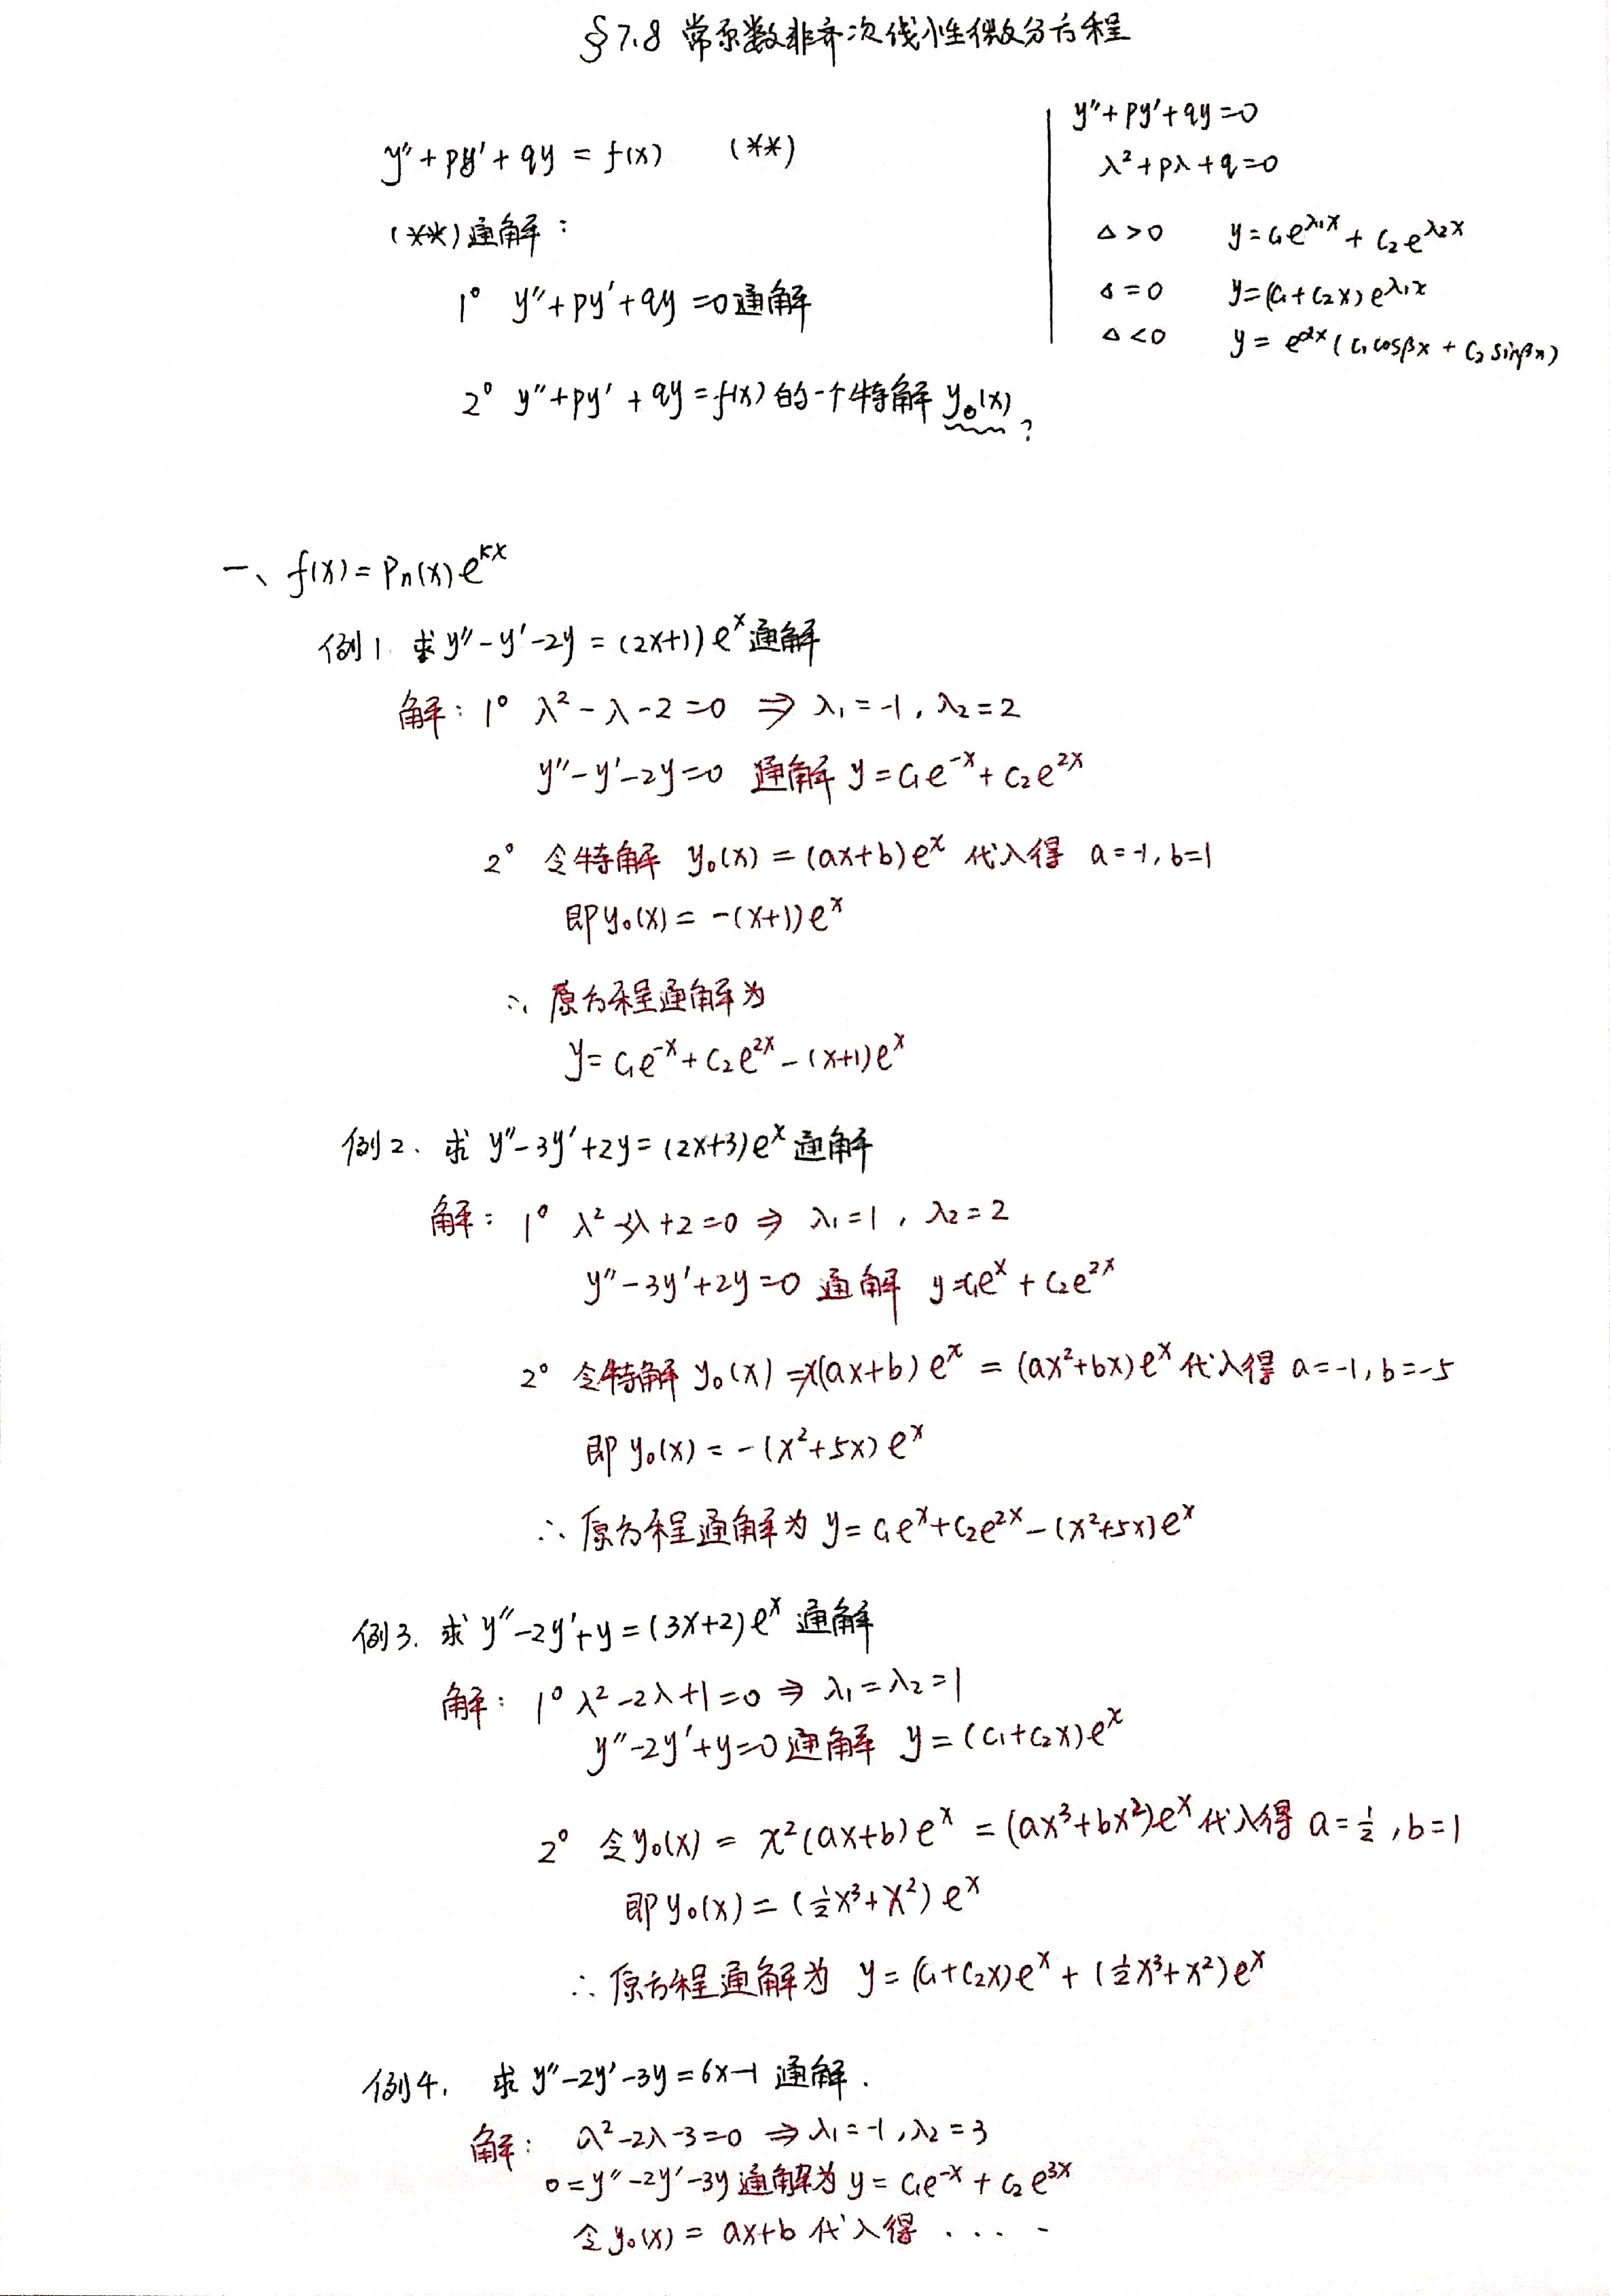 §7.8 常系数非齐次线性微分方程
y″+py′+qy = f(x) (**)
(**)通解：
1° y″+py′+qy=0通解
2° y″+py′+qy=f(x)的一个特解 y₀(x)?
y″+py′+qy=0
λ²+pλ+q=0
Δ>0 y=C₁e^{λ₁x}+C₂e^{λ₂x}
Δ=0 y=(C₁+C₂x)e^{λ₁x}
Δ<0 y=e^{αx}(C₁cosβx+C₂sinβx)
一、f(x)=Pn(x)e^{kx}
例1. 求y″-y′-2y=(2x+1)e^x通解
解：1° λ²-λ-2=0 ⇒ λ₁=-1，λ₂=2
y″-y′-2y=0 通解 y=C₁e^{-x}+C₂e^{2x}
2° 令特解 y₀(x)=(ax+b)e^x 代入得 a=-1,b=1
即y₀(x)=-(x+1)e^x
∴ 原方程通解为
y=C₁e^{-x}+C₂e^{2x}-(x+1)e^x
例2. 求 y″-3y′+2y=(2x+3)e^x通解
解：1° λ²-3λ+2=0 ⇒ λ₁=1，λ₂=2
y″-3y′+2y=0 通解 y=C₁e^x+C₂e^{2x}
2° 令特解 y₀(x)=x(ax+b)e^x=(ax²+bx)e^x代入得 a=-1,b=-5
即 y₀(x)=-(x²+5x)e^x
∴ 原方程通解为 y=C₁e^x+C₂e^{2x}-(x²+5x)e^x
例3. 求 y″-2y′+y=(3x+2)e^x 通解
解：1° λ²-2λ+1=0 ⇒ λ₁=λ₂=1
y″-2y′+y=0通解 y=(C₁+C₂x)e^x
2° 令y₀(x)=x²(ax+b)e^x=(ax³+bx²)e^x代入得 a=½,b=1
即y₀(x)=(½x³+x²)e^x
∴ 原方程通解为 y=(C₁+C₂x)e^x+(½x³+x²)e^x
例4. 求 y″-2y′-3y=6x-1 通解.
解：λ²-2λ-3=0 ⇒ λ₁=-1,λ₂=3
0=y″-2y′-3y通解为 y=C₁e^{-x}+C₂e^{3x}
令y₀(x)=ax+b 代入得 ....